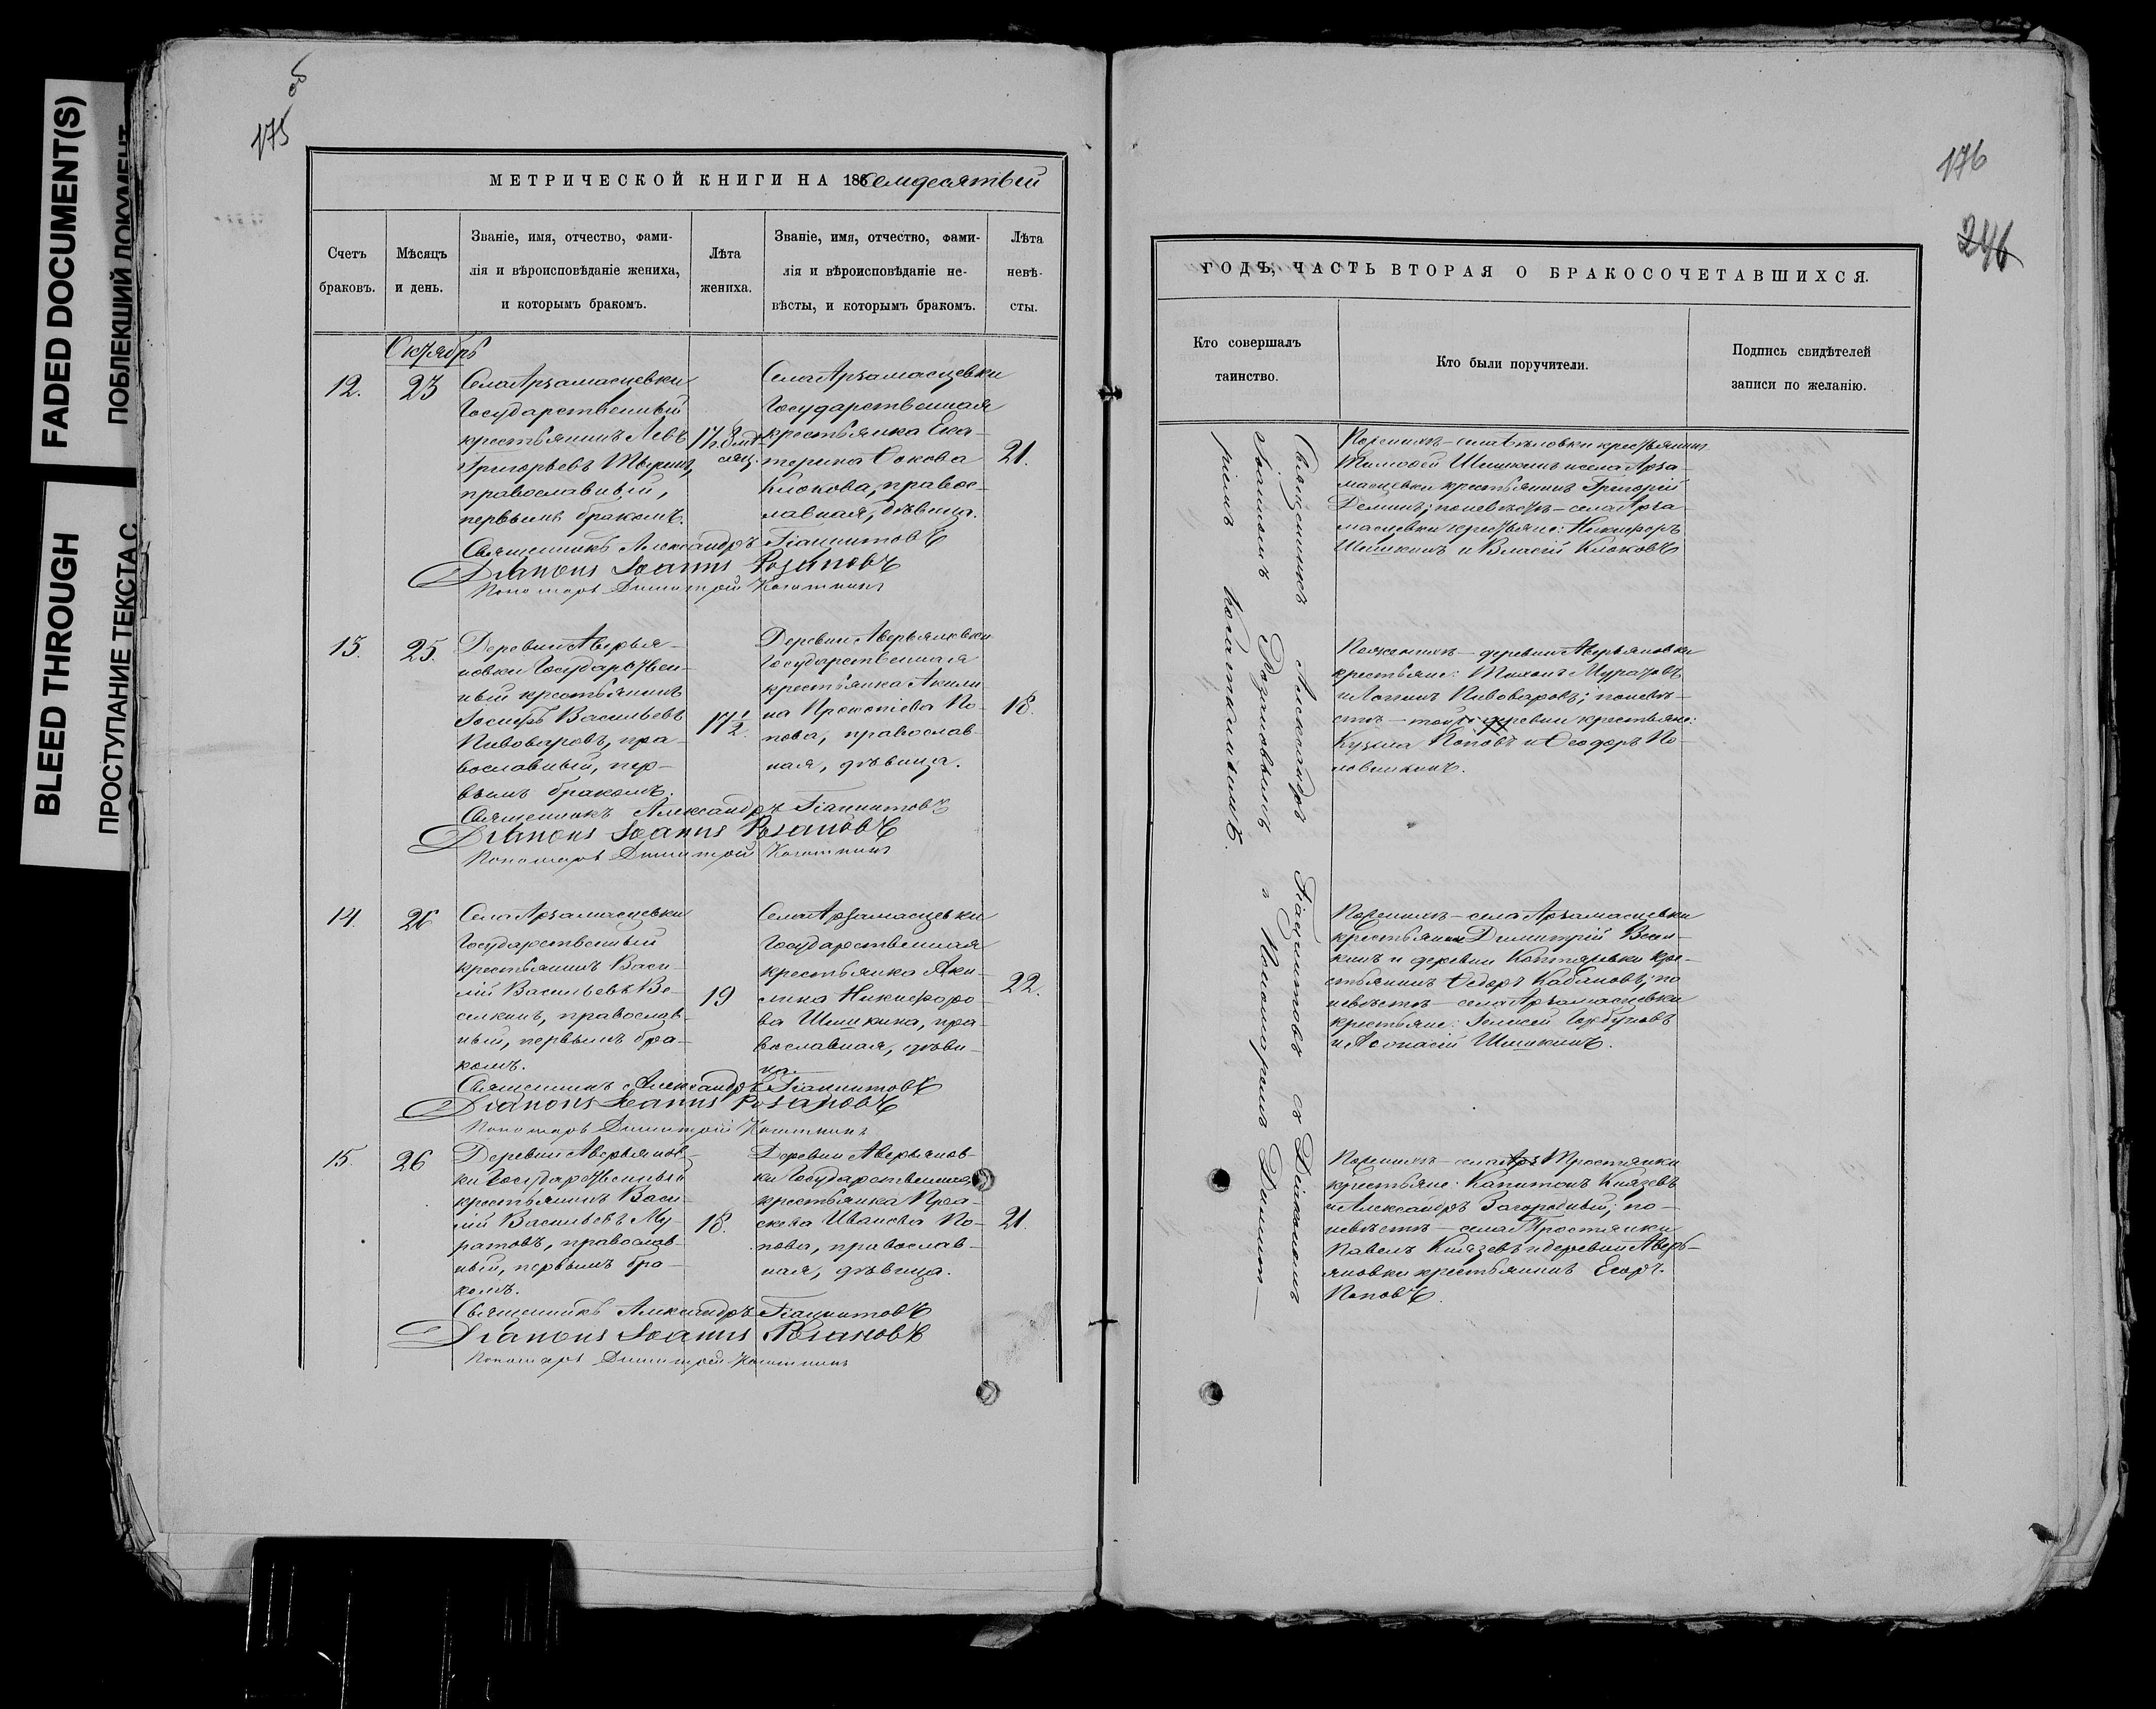 FADED DOCUMENT(S)
ПОБЛЕКШИЙ ДОКУМЕНТ
BLEED THROUGH
ПРОСТУПАНИЕ ТЕКСТА С
175
об
МЕТРИЧЕСКОЙ КНИГИ НА 186 семдесятый
Счетъ браковъ.
Мѣсяцъ и день.
Званіе, имя, отчество, фами-
лія и вѣроисповѣданіе жениха,
и которымъ бракомъ.
Лѣта жениха.
Званіе, имя, отчество, фами-
лія и вѣроисповѣданіе не-
вѣсты, и которымъ бракомъ.
Лѣта невѣ-
сты.
Октябрь
12.
23
Села Арзамасцевки
Государственный
крестьянинъ Левъ
Григорьевъ
православный,
первымъ бракомъ.
17
Села Арзамасцевки
Государственная
крестьянка Ека-
терина
Клокова, правос-
лавная, дѣвица.
21.
Священникъ Александръ Гіацинтовъ
Діаконъ Іоаннъ Розановъ
Пономарь Димитрій
13.
25.
Деревни Аверья-
новки Государствен-
ный крестьянинъ
Іосифъ Васильевъ
Пивоваровъ, пра-
вославный, пер-
вымъ бракомъ.
17 1/2.
Деревни Аверьяновки
Государственная
крестьянка Акили-
на Прокопіева По-
пова, православ-
ная, дѣвица.
18.
Священникъ Александръ Гіацинтовъ
Діаконъ Іоаннъ Розановъ
Пономарь Димитрій
14.
26
Села Арзамасцевки
Государственный
крестьянинъ Васи-
лій Васильевъ Ве-
селкинъ, православ-
ный, первымъ бра-
комъ.
19
Села Арзамасцевки
Государственная
крестьянка Аки-
лина Никифоро-
ва Шишкина, пра-
вославная, дѣви-
ца.
22.
Священникъ Александръ Гіацинтовъ
Діаконъ Іоаннъ Розановъ
Пономарь Димитрій
15.
26
Деревни Аверьянов-
ки Государственный
крестьянинъ Васи-
лій Васильевъ Му-
ратовъ, православ-
ный, первымъ бра-
комъ.
18.
Деревни Аверьянов-
ки Государственная
крестьянка Пра-
скева Иванова По-
пова, православ-
ная, дѣвица.
21.
Священникъ Александръ Гіацинтовъ
Діаконъ Іоаннъ Розановъ
Пономарь Димитрій
176
246
ГОДЪ, ЧАСТЬ ВТОРАЯ О БРАКОСОЧЕТАВШИХСЯ.
Кто совершалъ
таинство.
Кто были поручители.
Подпись свидѣтелей
записи по желанію.
Священникъ Александръ Гіацинтовъ съ Діакономъ
Іоанномъ Розановымъ и Пономаремъ Димит-
ріемъ
крестьянинъ
Тимофей Шишкинъ и села Арза-
масцевки крестьянинъ Григорій
Деминъ; по невѣстѣ – села Арза-
масцевки крестьяне: Никифоръ
Шишкинъ и Власій Клоковъ
По женихѣ – деревни Аверьяновки
крестьяне: Тихонъ Муратовъ
и Логинъ Пивоваровъ; по невѣ-
стѣ – той деревни крестьяне:
Кузьма Поповъ и Ѳеодоръ По-
По женихѣ – села Арзамасцевки
крестьянинъ Димитрій Весел-
кинъ и деревни кре-
стьянинъ Ѳедоръ Кабановъ; по
невѣстѣ – села Арзамасцевки
крестьяне:
и Аѳонасій Шишкинъ.
По женихѣ – села Тростянки
крестьяне: Капитонъ Князевъ
и Александръ Загородный; по
невѣстѣ – села Тростянки
Павелъ Князевъ и деревни Аверь-
яновки крестьянинъ Егоръ
Поповъ.